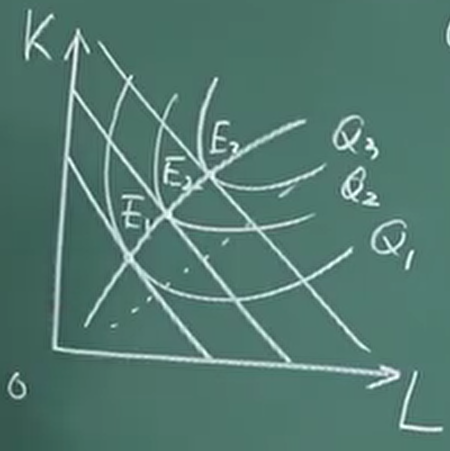 K
E₃
Q₃
E₂
Q₂
E₁
Q₁
0
L